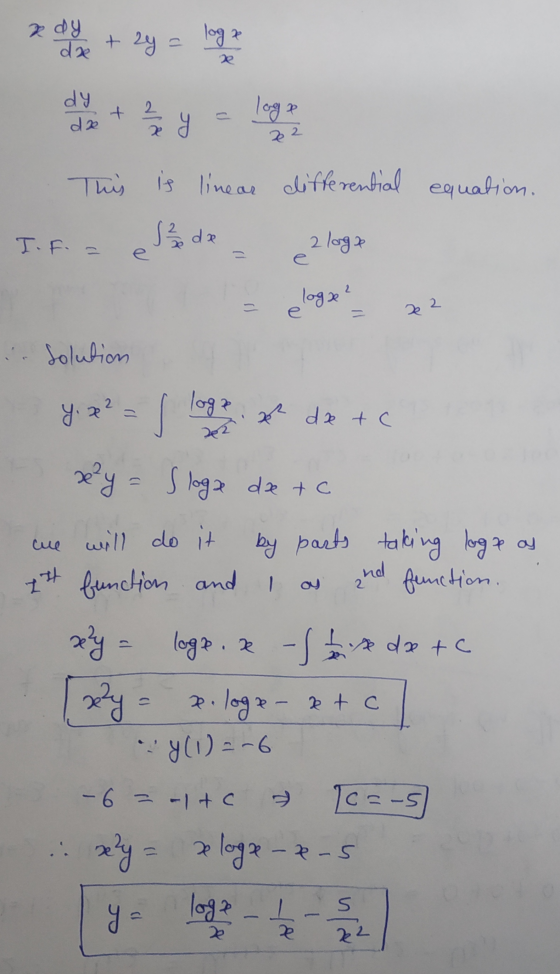 x dy/dx + 2y = log x / x
dy/dx + 2/x y = log x / x²
This is linear differential equation.
I.F. = e^{∫ 2/x dx} = e^{2 log x}
= e^{log x²} = x²
∴ Solution
y·x² = ∫ log x / x² · x² dx + C
x²y = ∫ log x dx + C
we will do it by parts taking log x as
1st function and 1 as 2nd function.
x²y = log x · x - ∫ 1/x · x dx + C
x²y = x · log x - x + C
∵ y(1) = -6
-6 = -1 + C ⇒ C = -5
∴ x²y = x log x - x - 5
y = log x / x - 1/x - 5/x²